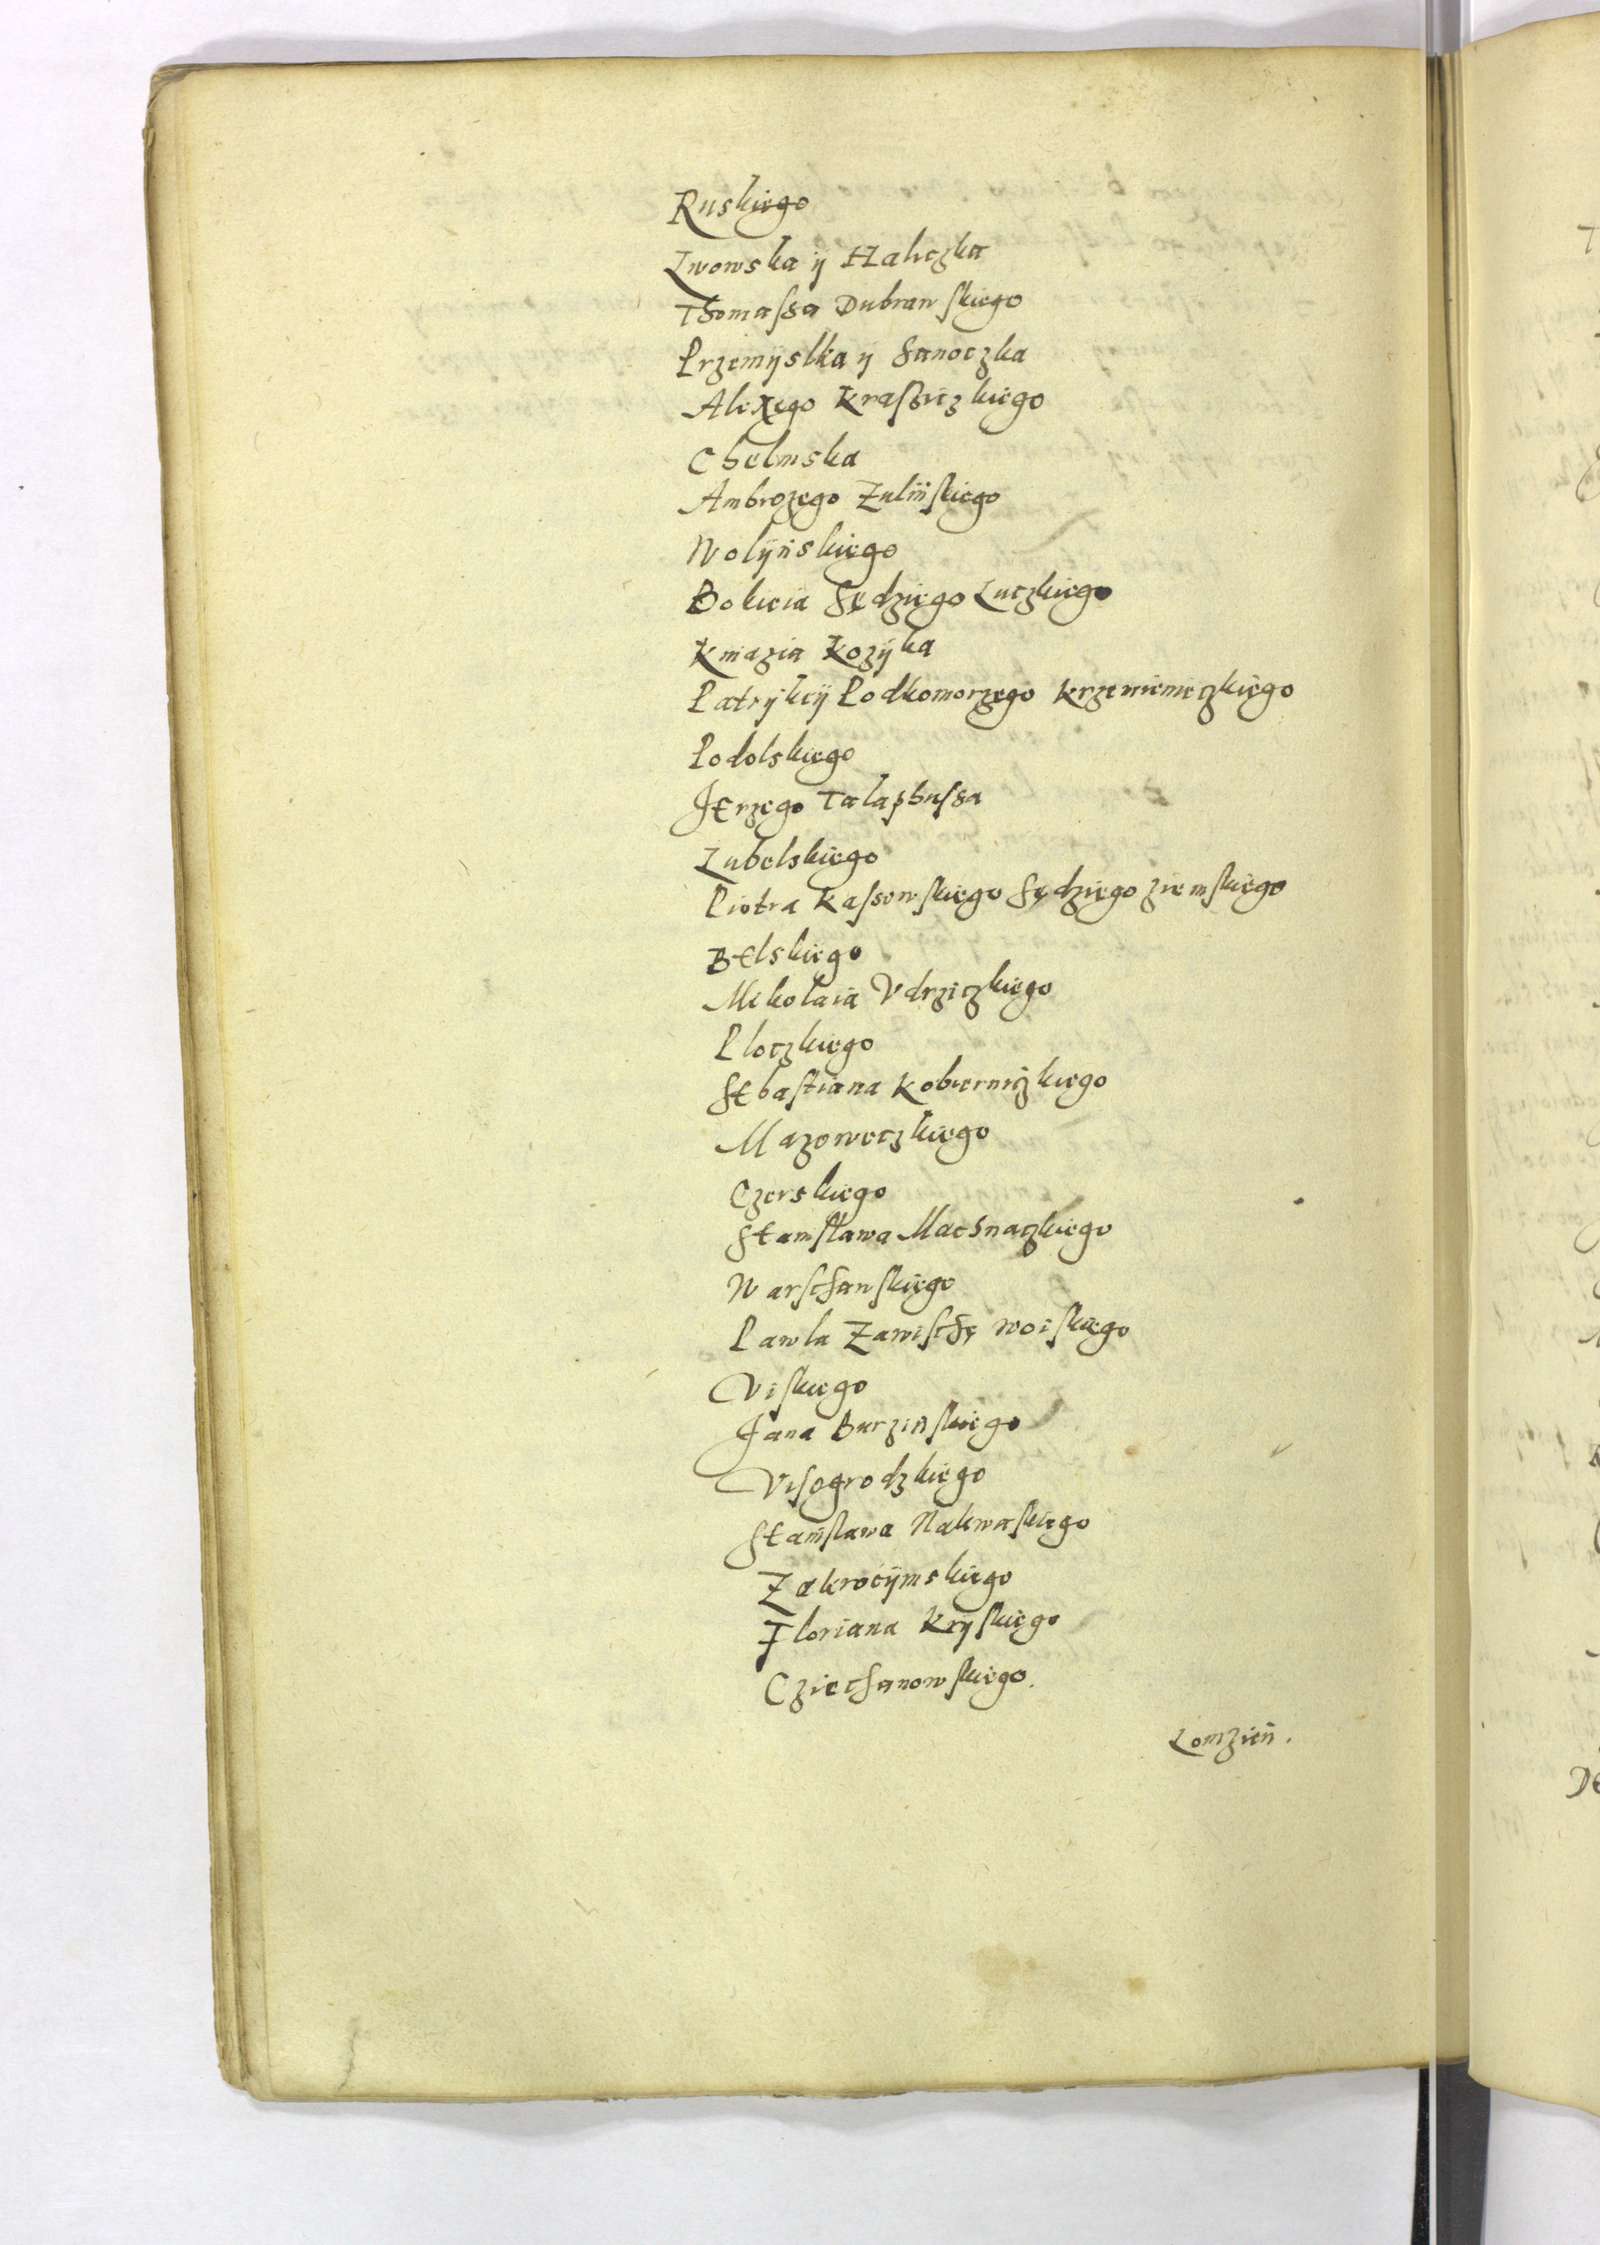 Ruskiego
Lwowska ÿ Haliczka
Thomassa Dubrawskiego
Przemÿslka ÿ Sanoczka
Alexego Krassiczkiego
Chelmska
Ambrozego Zulińskiego
Wolÿńskiego
Bokieia Sędziego Luczkiego
Kniazia Kozÿka
Patrÿkÿ Podkomorzego Krzemienieczkiego
Podolskiego
Jerzego Talaphussa
Lubelskiego
Piotra Kassowskiego Sędziego ziemskiego
Belskiego
Mikolaia Vdrziczkiego
Ploczkiego
Sebastiana Kobierniczkiego
Mazoweczkiego
Czerskiego
Stanislawa Machnaczkiego
Warschawskiego
Pawla Zawischę woiskiego
Viskiego
Jana Burzińskiego
Visogrodzkiego
Stanislawa Nakwaskiego
Zakrocÿmskiego
Floriana Krÿskiego
Cziechanowskiego.
Lomzień.